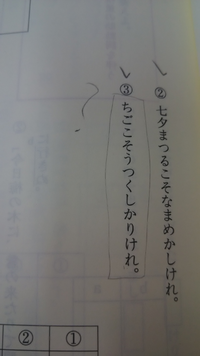 ② 七夕まつるこそなまめかしけれ。
③ ちごこそうつくしかりけれ。
①
②